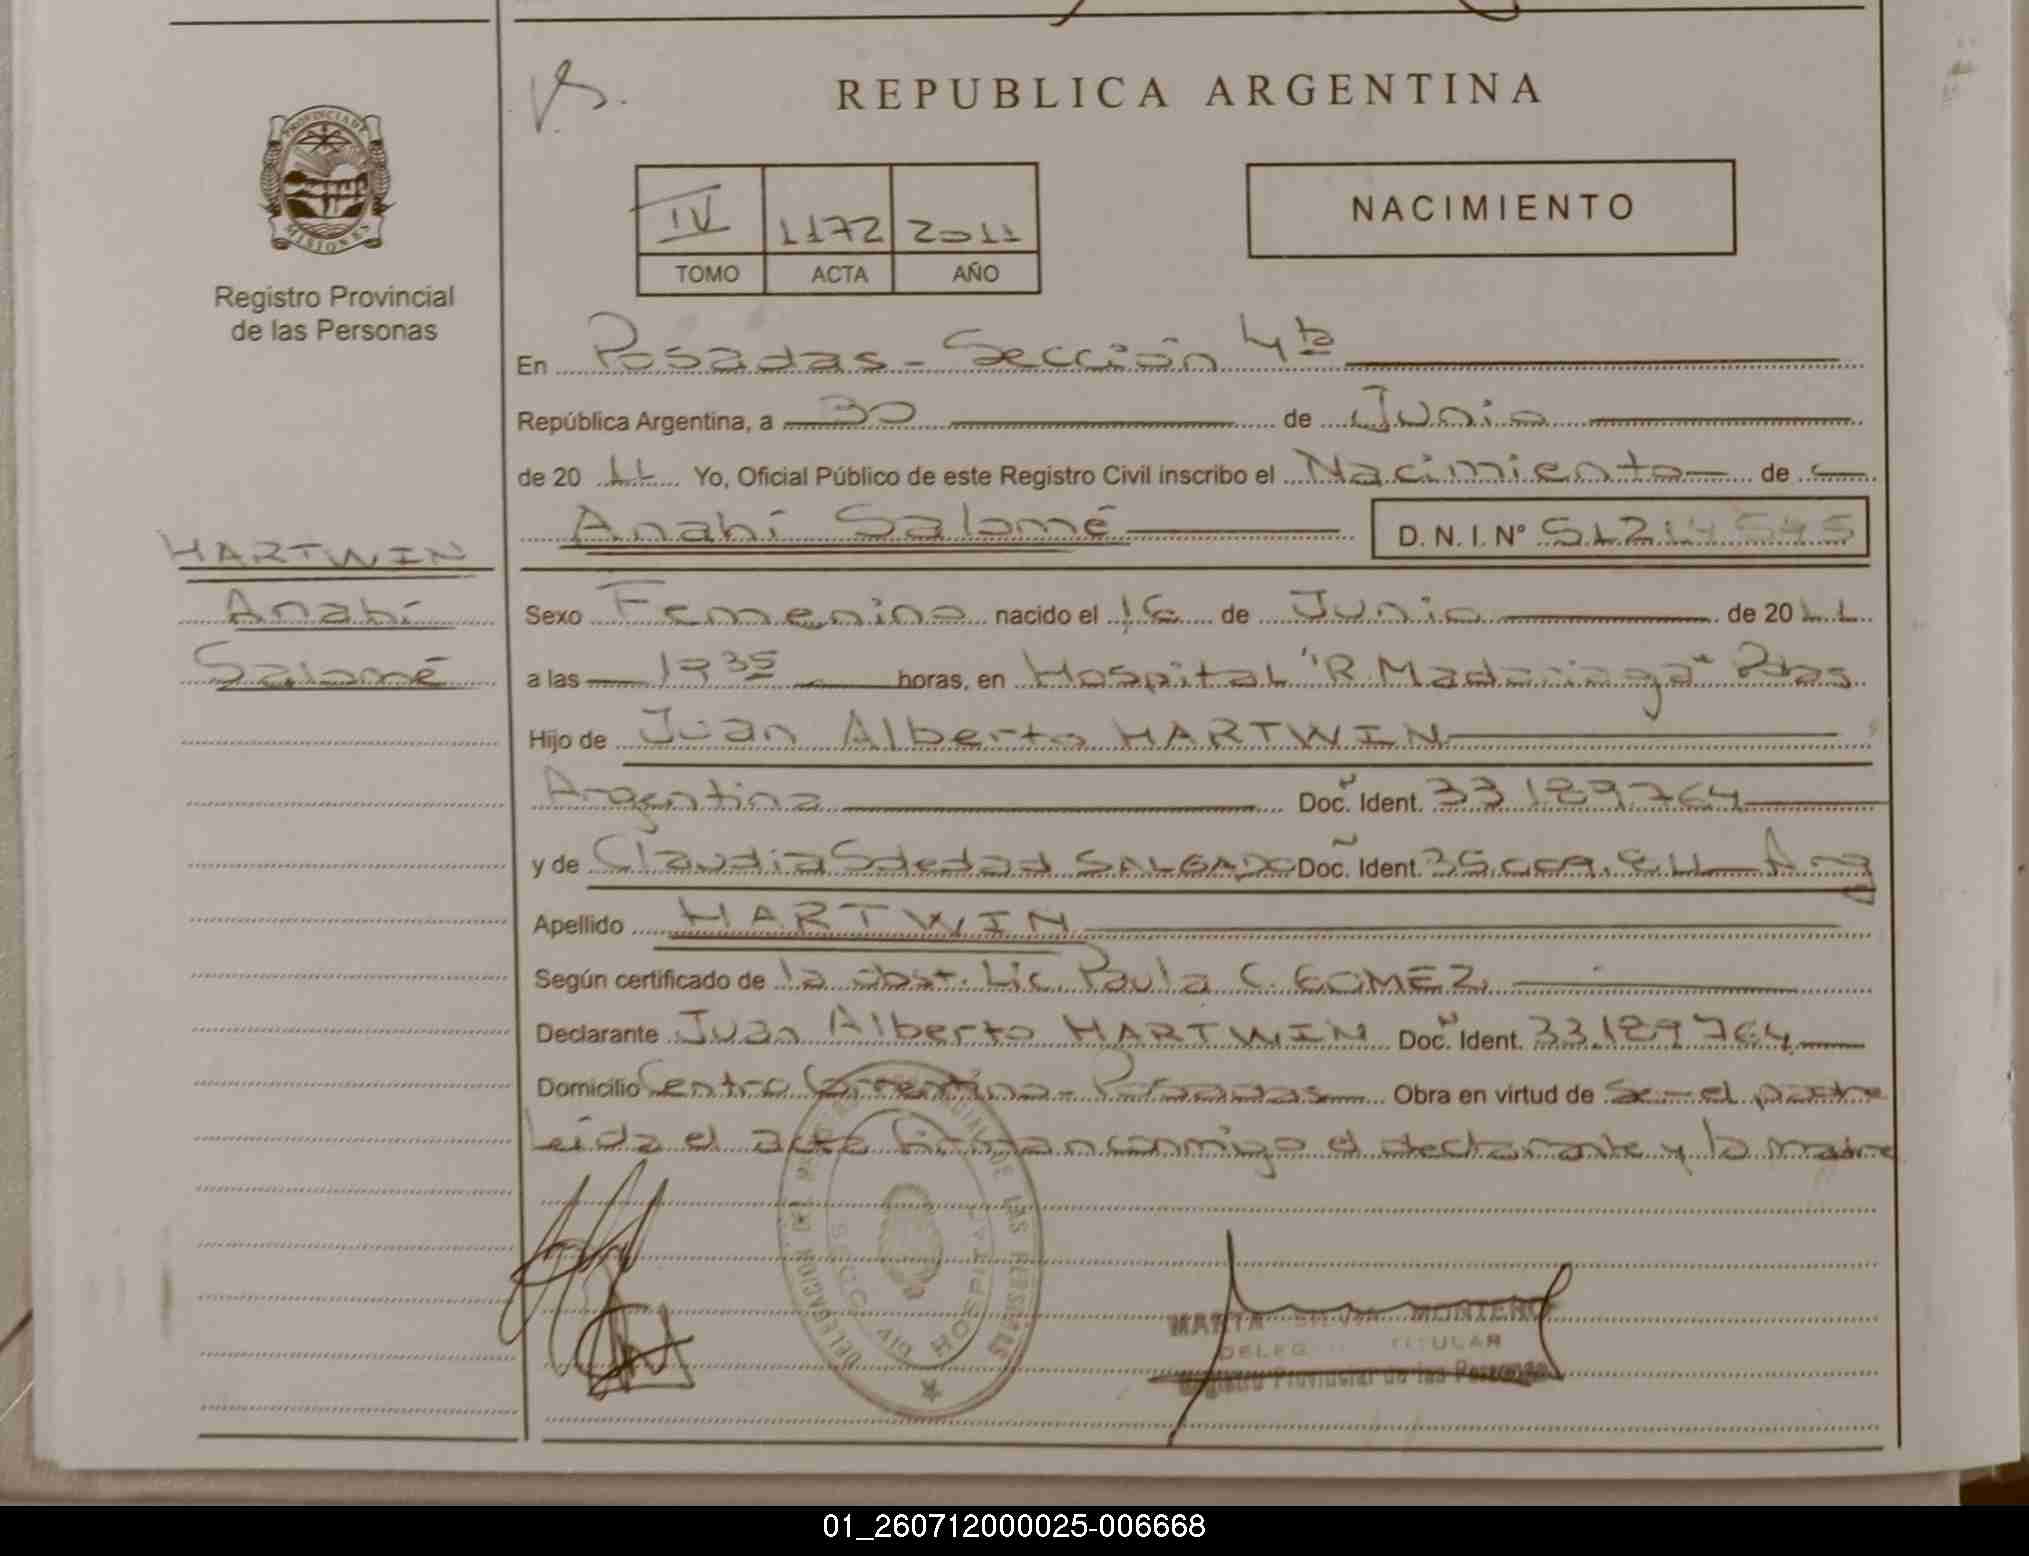 REPUBLICA ARGENTINA
PROVINCIA DE
MISIONES
Registro Provincial
de las Personas
IV 1172 2011
TOMO ACTA AÑO
NACIMIENTO
En Posadas - Sección 4ta
República Argentina, a 30 de Junio
de 20 11 Yo, Oficial Público de este Registro Civil inscribo el Nacimiento de
Anahí Salomé D.N.I. Nº 51214545
HARTWIN
Anahí
Salomé
Sexo Femenino nacido el 16 de Junio de 20 11
a las 19 35 horas, en Hospital "R. Madariaga" Pdas
Hijo de Juan Alberto HARTWIN
Argentina Doc. Ident. 33.189.764
y de Claudia Soledad SALGADO Doc. Ident. 35.009.811 Arg
Apellido HARTWIN
Según certificado de la obst. Lic. Paula C. GOMEZ
Declarante Juan Alberto HARTWIN Doc. Ident. 33.189.764
Domicilio Centro Correntino - Posadas Obra en virtud de Se - el padre
Leída el acta firman conmigo el declarante y la madre
DELEGACION
DE LAS PERSONAS
HOSPITAL
MARTA SILVIA MONTERO
DELEG TITULAR
Registro Provincial de las Personas
01_260712000025-006668